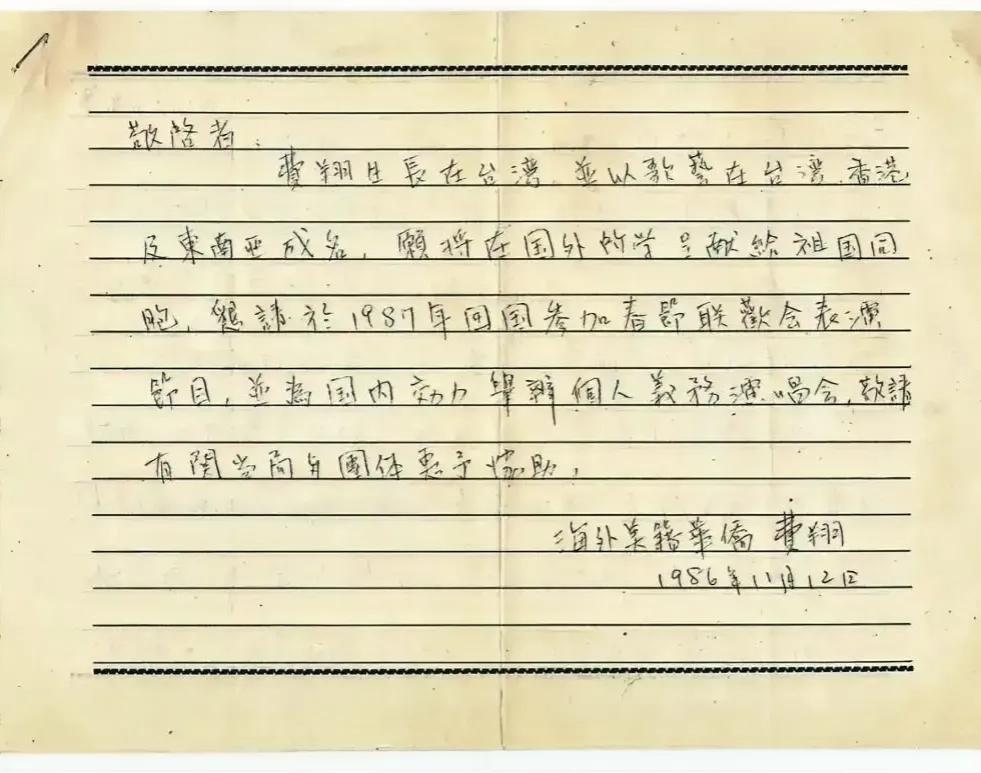 敬啓者：
費翔生長在台湾，並以歌藝在台湾、香港
及東南亚成名，願将在国外所学呈献給祖国同
胞，懇請於1987年回国参加春節联歡会表演
節目，並為国内効力舉辦個人義務演唱会，敬請
有関当局与團体惠予協助，
海外美籍華僑 費翔
1986年11月12日